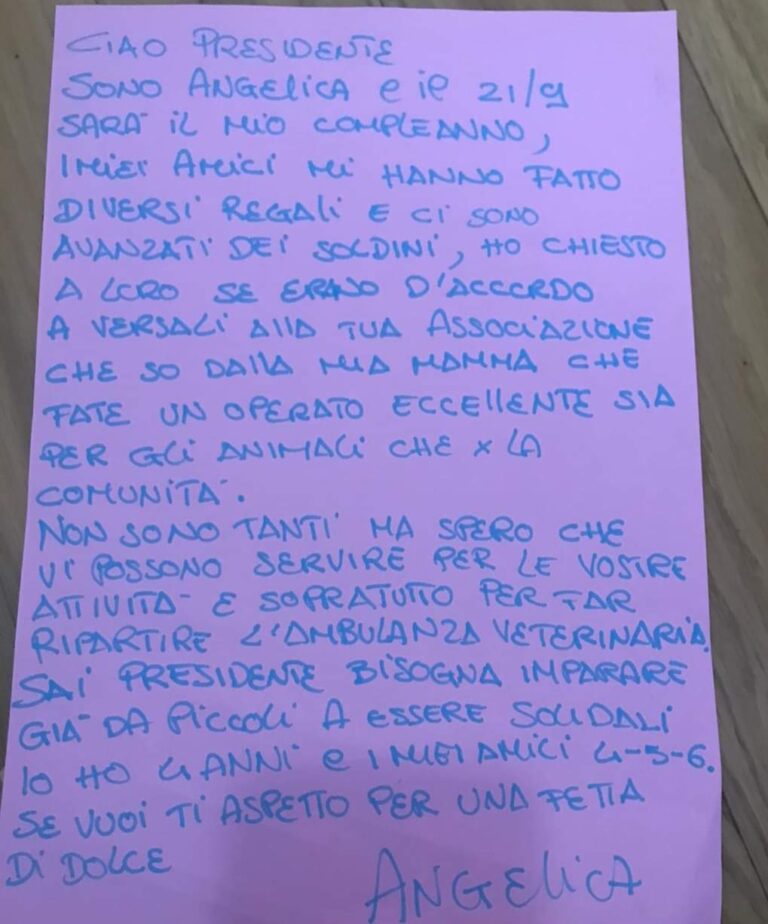 CIAO PRESIDENTE
SONO ANGELICA e il 21/9
SARA' IL MIO COMPLEANNO,
I MIEI AMICI MI HANNO FATTO
DIVERSI REGALI E CI SONO
AVANZATI DEI SOLDINI, HO CHIESTO
A LORO SE ERANO D'ACCORDO
A VERSALI ALLA TUA ASSOCIAZIONE
CHE SO DALLA MIA MAMMA CHE
FATE UN OPERATO ECCELLENTE SIA
PER GLI ANIMALI CHE x LA
COMUNITA'.
NON SONO TANTI MA SPERO CHE
VI POSSONO SERVIRE PER LE VOSTRE
ATTIVITA' E SOPRATUTTO PER FAR
RIPARTIRE L'AMBULANZA VETERINARIA.
SAI PRESIDENTE BISOGNA IMPARARE
GIA' DA PICCOLI A ESSERE SOLIDALI
IO HO 4 ANNI e I MIEI AMICI 4-5-6.
SE VUOI TI ASPETTO PER UNA FETTA
DI DOLCE
ANGELICA